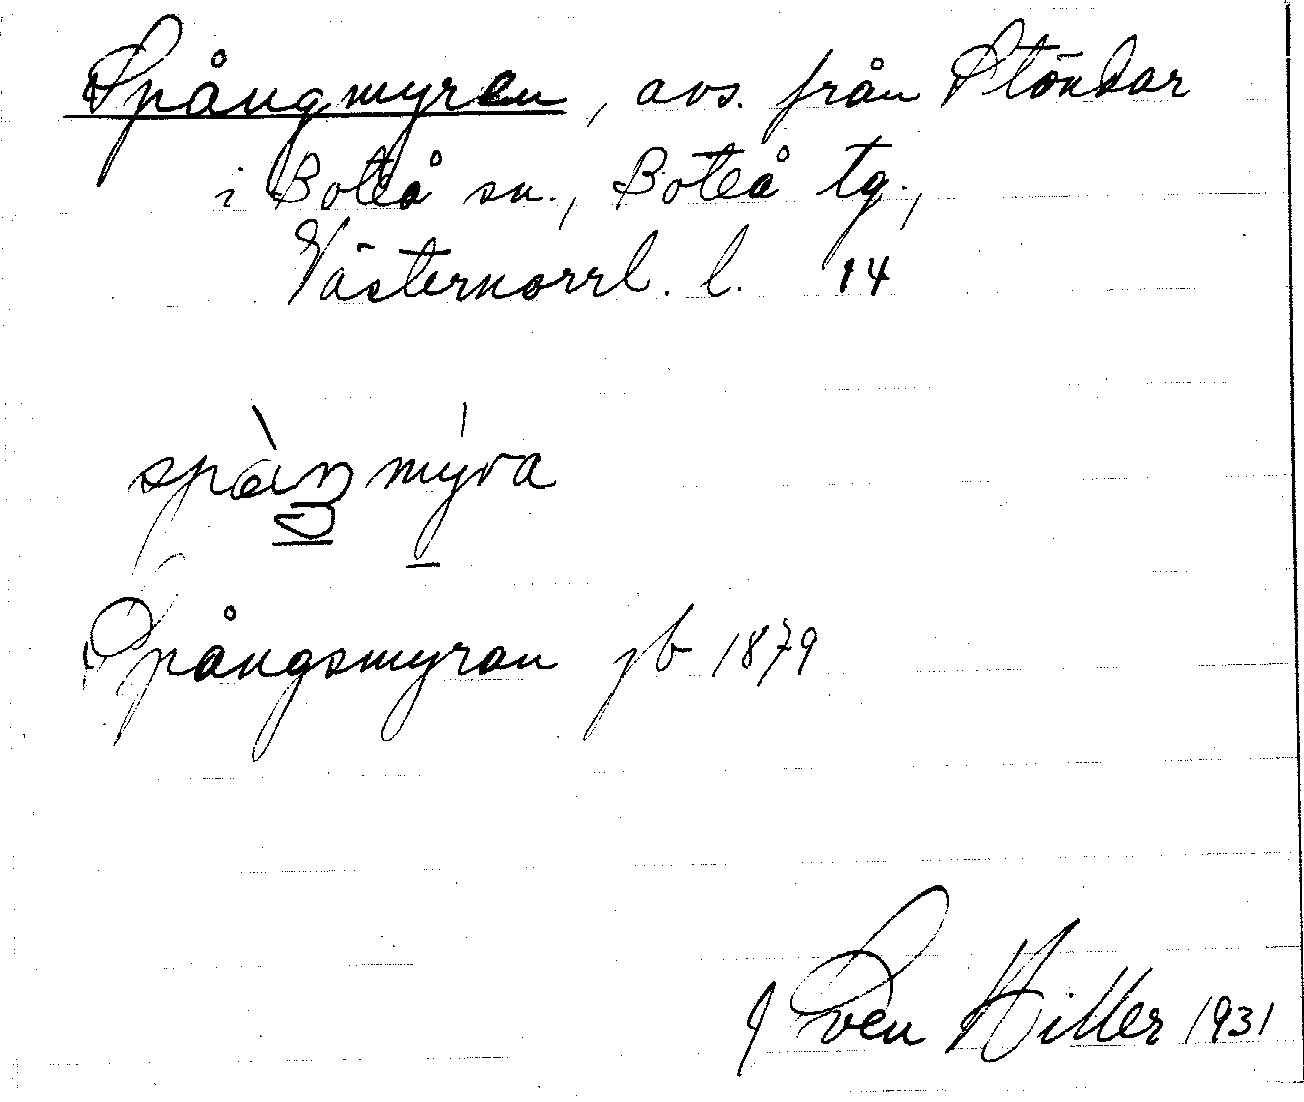 Spångmyren, avs. från Stöndar
i Boteå sn., Boteå tg.,
Västernorrl. l. 14
Spångsmyran jb 1879
Sven Hiller 1931